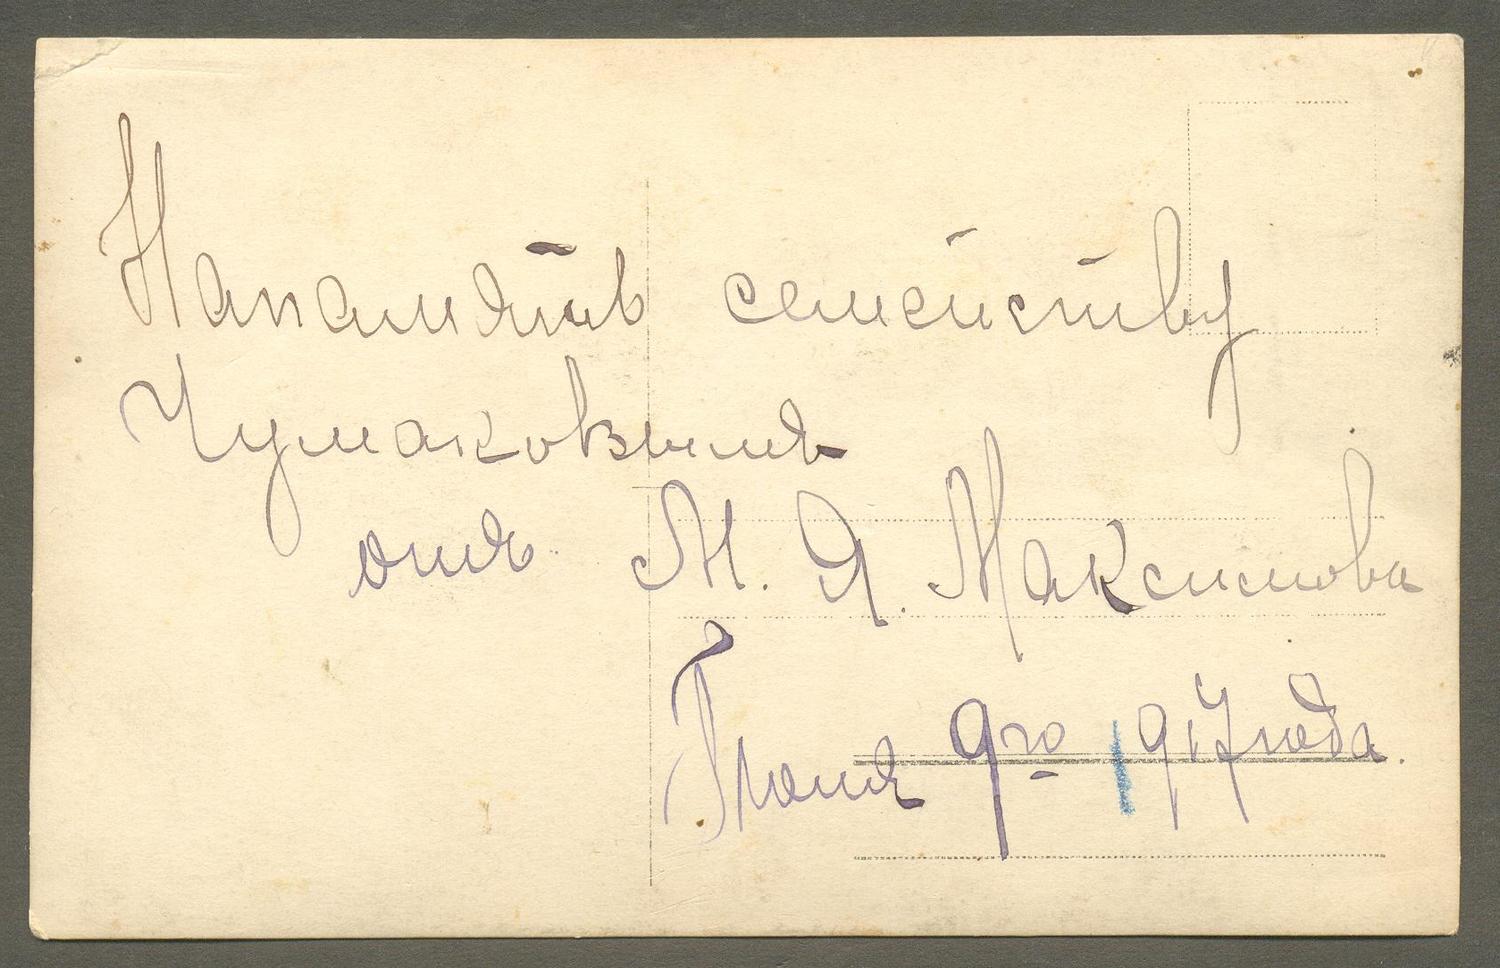 Напамять семейству
Чумаковымъ
отъ М. Я. Максимова
Iюня 9го 1917 года.